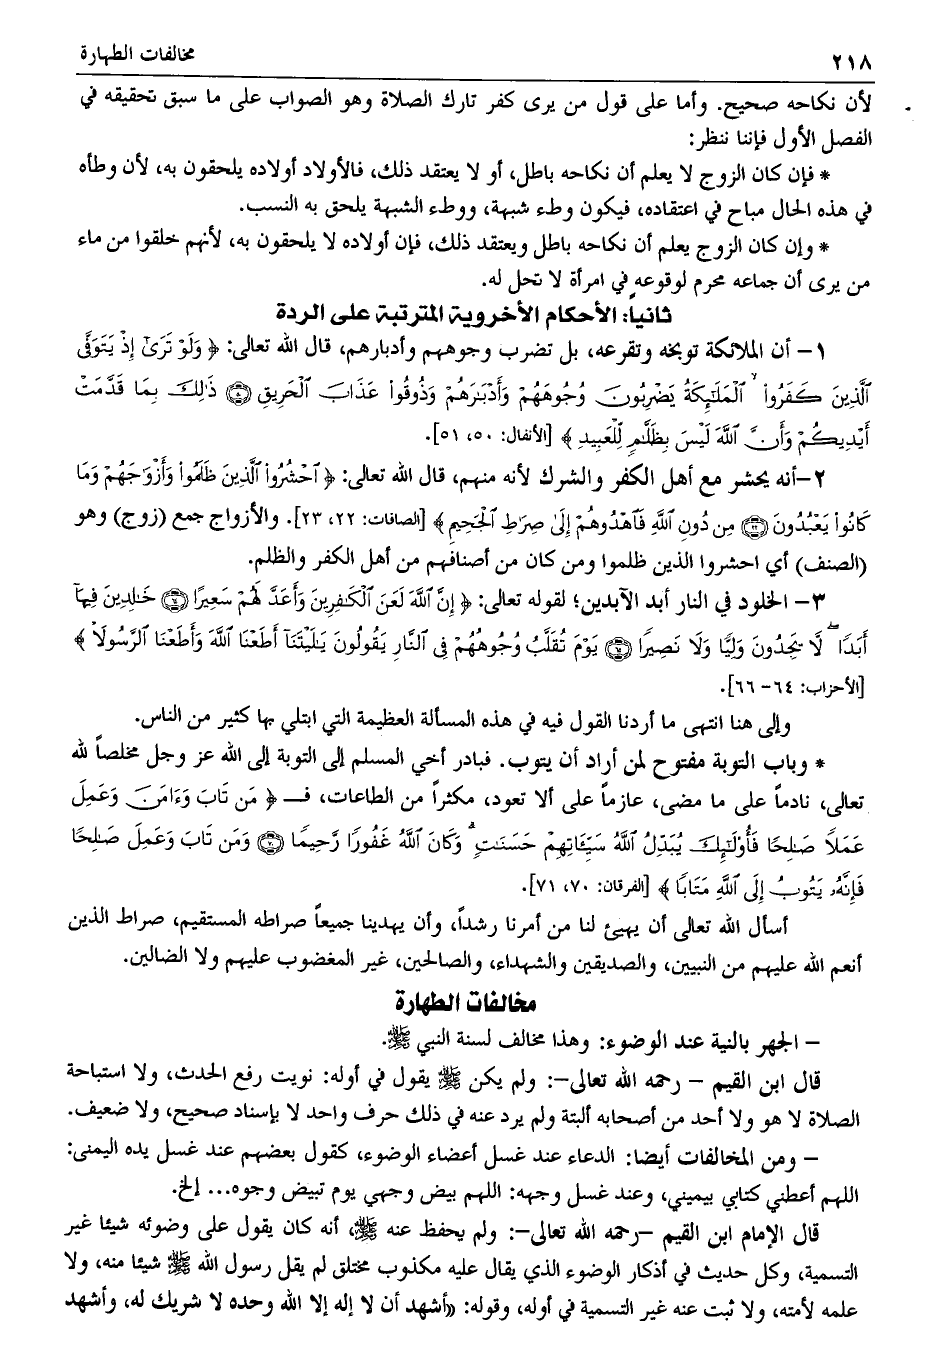 ٢١٨ مخالفات الطهارة
لأن نكاحه صحيح. وأما على قول من يرى كفر تارك الصلاة وهو الصواب على ما سبق تحقيقه في
الفصل الأول فإننا ننظر:
* فإن كان الزوج لا يعلم أن نكاحه باطل، أو لا يعتقد ذلك، فالأولاد أولاده يلحقون به، لأن وطأه
في هذه الحال مباح في اعتقاده، فيكون وطء شبهة، ووطء الشبهة يلحق به النسب.
* وإن كان الزوج يعلم أن نكاحه باطل ويعتقد ذلك، فإن أولاده لا يلحقون به، لأنهم خلقوا من ماء
من يرى أن جماعه محرم لوقوعه في امرأة لا تحل له.
ثانيا: الأحكام الأخروية المترتبة على الردة
١- أن الملائكة توبخه وتقرعه، بل تضرب وجوههم وأدبارهم، قال الله تعالى: ﴿ وَلَوْ تَرَىٰٓ إِذْ يَتَوَفَّى
ٱلَّذِينَ كَفَرُوا۟ ۙ ٱلْمَلَـٰٓئِكَةُ يَضْرِبُونَ وُجُوهَهُمْ وَأَدْبَـٰرَهُمْ وَذُوقُوا۟ عَذَابَ ٱلْحَرِيقِ ۝٥٠ ذَٰلِكَ بِمَا قَدَّمَتْ
أَيْدِيكُمْ وَأَنَّ ٱللَّهَ لَيْسَ بِظَلَّـٰمٍ لِّلْعَبِيدِ ﴾ [الأنفال: ٥٠، ٥١].
٢-أنه يحشر مع أهل الكفر والشرك لأنه منهم، قال الله تعالى: ﴿ ٱحْشُرُوا۟ ٱلَّذِينَ ظَلَمُوا۟ وَأَزْوَٰجَهُمْ وَمَا
كَانُوا۟ يَعْبُدُونَ ۝٢٢ مِن دُونِ ٱللَّهِ فَٱهْدُوهُمْ إِلَىٰ صِرَٰطِ ٱلْجَحِيمِ ﴾ [الصافات: ٢٢، ٢٣]. والأزواج جمع (زوج) وهو
(الصنف) أي احشروا الذين ظلموا ومن كان من أصنافهم من أهل الكفر والظلم.
٣- الخلود في النار أبد الآبدين؛ لقوله تعالى: ﴿ إِنَّ ٱللَّهَ لَعَنَ ٱلْكَـٰفِرِينَ وَأَعَدَّ لَهُمْ سَعِيرًا ۝٦٤ خَـٰلِدِينَ فِيهَآ
أَبَدًا ۖ لَّا يَجِدُونَ وَلِيًّا وَلَا نَصِيرًا ۝٦٥ يَوْمَ تُقَلَّبُ وُجُوهُهُمْ فِى ٱلنَّارِ يَقُولُونَ يَـٰلَيْتَنَآ أَطَعْنَا ٱللَّهَ وَأَطَعْنَا ٱلرَّسُولَا۠ ﴾
[الأحزاب: ٦٤- ٦٦].
وإلى هنا انتهى ما أردنا القول فيه في هذه المسألة العظيمة التي ابتلي بها كثير من الناس.
* وباب التوبة مفتوح لمن أراد أن يتوب. فبادر أخي المسلم إلى التوبة إلى الله عز وجل مخلصاً لله
تعالى، نادماً على ما مضى، عازماً على ألا تعود، مكثراً من الطاعات، فـ ﴿ مَن تَابَ وَءَامَنَ وَعَمِلَ
عَمَلًا صَـٰلِحًا فَأُو۟لَـٰٓئِكَ يُبَدِّلُ ٱللَّهُ سَيِّـَٔاتِهِمْ حَسَنَـٰتٍ ۗ وَكَانَ ٱللَّهُ غَفُورًا رَّحِيمًا ۝٧٠ وَمَن تَابَ وَعَمِلَ صَـٰلِحًا
فَإِنَّهُۥ يَتُوبُ إِلَى ٱللَّهِ مَتَابًا ﴾ [الفرقان: ٧٠، ٧١].
أسأل الله تعالى أن يهيئ لنا من أمرنا رشداً، وأن يهدينا جميعاً صراطه المستقيم، صراط الذين
أنعم الله عليهم من النبيين، والصديقين والشهداء، والصالحين، غير المغضوب عليهم ولا الضالين.
مخالفات الطهارة
– الجهر بالنية عند الوضوء: وهذا مخالف لسنة النبي ﷺ.
قال ابن القيم – رحمه الله تعالى–: ولم يكن ﷺ يقول في أوله: نويت رفع الحدث، ولا استباحة
الصلاة لا هو ولا أحد من أصحابه ألبتة ولم يرد عنه في ذلك حرف واحد لا بإسناد صحيح، ولا ضعيف.
– ومن المخالفات أيضا: الدعاء عند غسل أعضاء الوضوء، كقول بعضهم عند غسل يده اليمنى:
اللهم أعطني كتابي بيميني، وعند غسل وجهه: اللهم بيض وجهي يوم تبيض وجوه... إلخ.
قال الإمام ابن القيم –رحمه الله تعالى–: ولم يحفظ عنه ﷺ، أنه كان يقول على وضوئه شيئا غير
التسمية، وكل حديث في أذكار الوضوء الذي يقال عليه مكذوب مختلق لم يقل رسول الله ﷺ شيئا منه، ولا
علمه لأمته، ولا ثبت عنه غير التسمية في أوله، وقوله: «أشهد أن لا إله إلا الله وحده لا شريك له، وأشهد